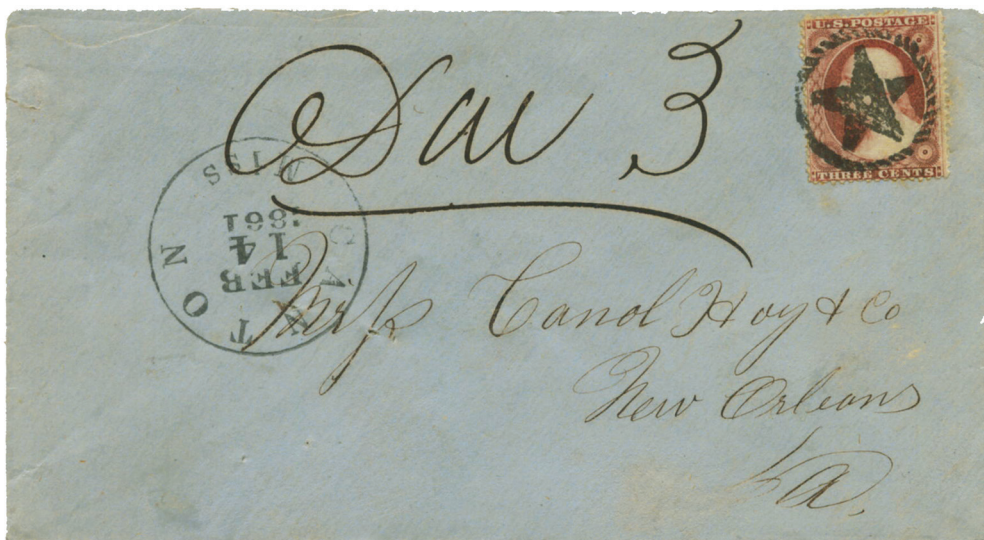 U.S. POSTAGE
THREE CENTS
Due 3
CANTON
MISS
FEB
14
1861
Messrs Carrol Hoy & Co
New Orleans
La.